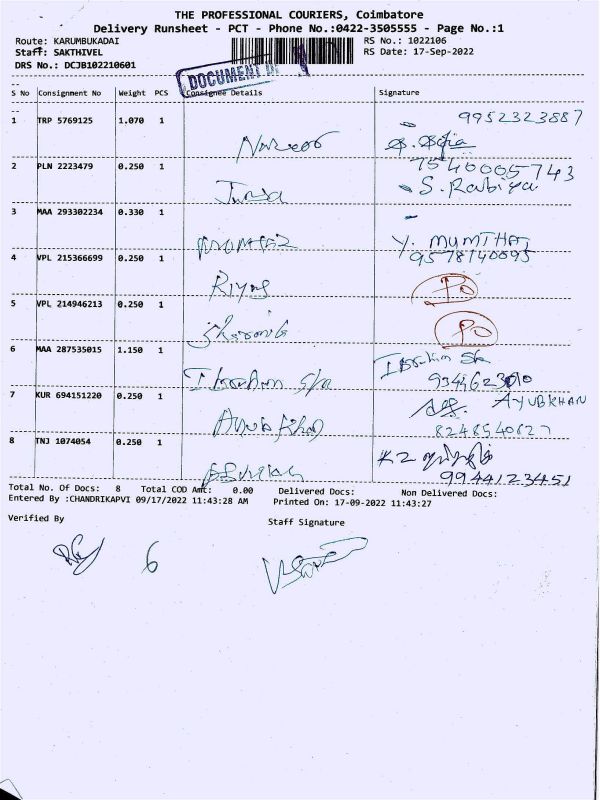 THE PROFESSIONAL COURIERS, Coimbatore
Delivery Runsheet - PCT - Phone No.:0422-3505555 - Page No.:1
Route: KARUMBUKADAI RS No.: 1022106
Staff: SAKTHIVEL RS Date: 17-Sep-2022
DRS No.: DCJB102210601
DOCUMENT
S No Consignment No Weight PCS Consignee Details Signature
1 TRP 5769125 1.070 1 9952323887
2 PLN 2223479 0.250 1 75400005743
S. Rabiya
3 MAA 293302234 0.330 1
MUMTAZ Y. MUMTHAJ
4 VPL 215366699 0.250 1 9578140095
Riyas
5 VPL 214946213 0.250 1
6 MAA 287535015 1.150 1 Ibrahim
Ibrahim
7 KUR 694151220 0.250 1 AYUBKHAN
Ayub Khan 8248540627
8 TNJ 1074054 0.250 1
9944123451
Total No. Of Docs: 8 Total COD Amt: 0.00 Delivered Docs: Non Delivered Docs:
Entered By :CHANDRIKAPVI 09/17/2022 11:43:28 AM Printed On: 17-09-2022 11:43:27
Verified By Staff Signature
6